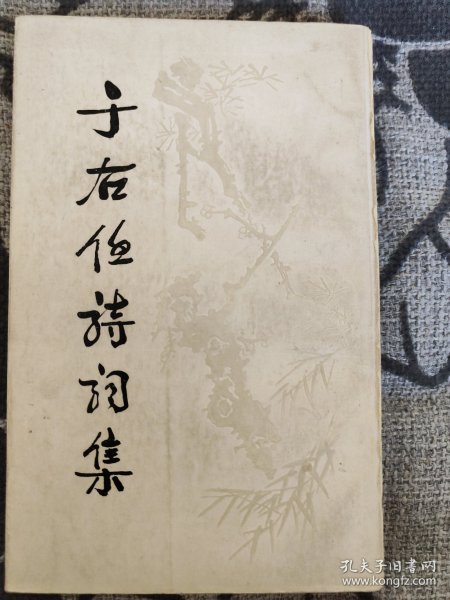 于右任詩詞集
孔夫子旧书网
www.kongfz.com